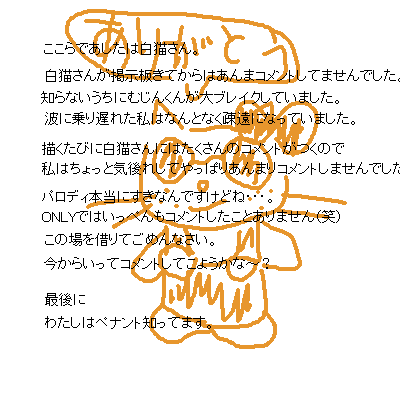 ありがとう
ここらであしたは白猫さん。
白猫さんが掲示板きてからはあんまコメントしてませんでした。
知らないうちにむじんくんが大ブレイクしていました。
波に乗り遅れた私はなんとなく疎遠になっていました。
描くたびに白猫さんにはたくさんのコメントがつくので
私はちょっと気後れしてやっぱりあんまりコメントしませんでした
パロディ本当にすきなんですけどね・・・。
ONLYではいっぺんもコメントしたことありません（笑）
この場を借りてごめんなさい。
今からいってコメントしてこようかな～？
最後に
わたしはペナント知ってます。